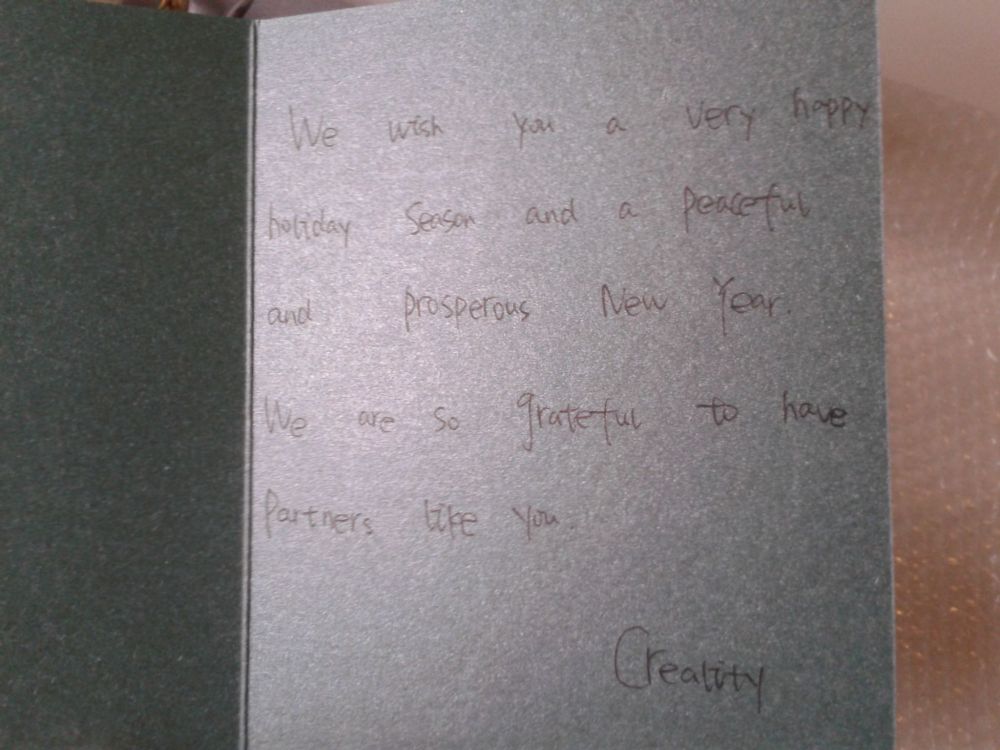 We wish you a very happy
holiday Season and a peaceful
and prosperous New Year.
We are so grateful to have
Partners like you.
Creality